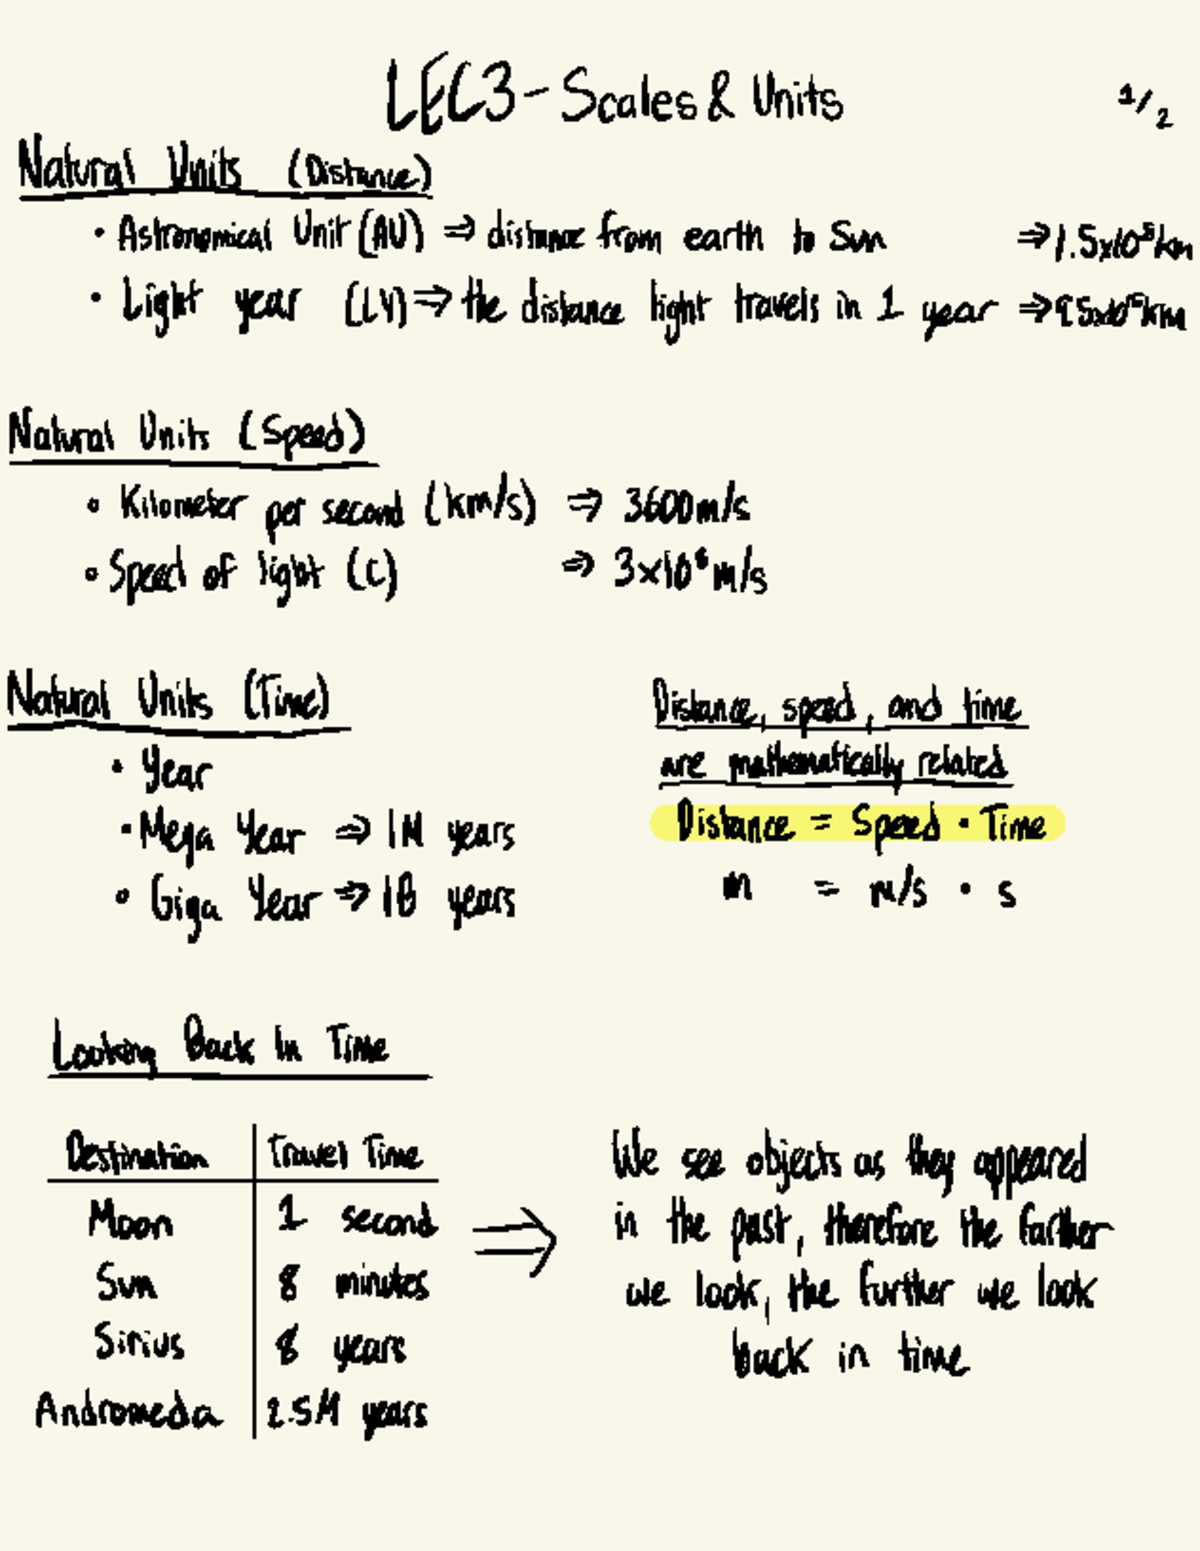 LEC3 - Scales & Units 1/2
Natural Units (Distance)
• Astronomical Unit (AU) ⇒ distance from earth to Sun ⇒ 1.5x10⁸km
• Light year (LY) ⇒ the distance light travels in 1 year ⇒
Natural Units (Speed)
• Kilometer per second (km/s) ⇒ 3600m/s
• Speed of light (C) ⇒ 3x10⁸m/s
Natural Units (Time)
• Year
• Mega Year ⇒ 1M years
• Giga Year ⇒ 1B years
Distance, speed, and time
are mathematically related
Distance = Speed • Time
m = m/s • s
Looking Back In Time
Destination Travel Time
Moon 1 second
Sun 8 minutes
Sirius 8 years
Andromeda 2.5M years
⇒
We see objects as they appeared
in the past, therefore the farther
we look, the further we look
back in time